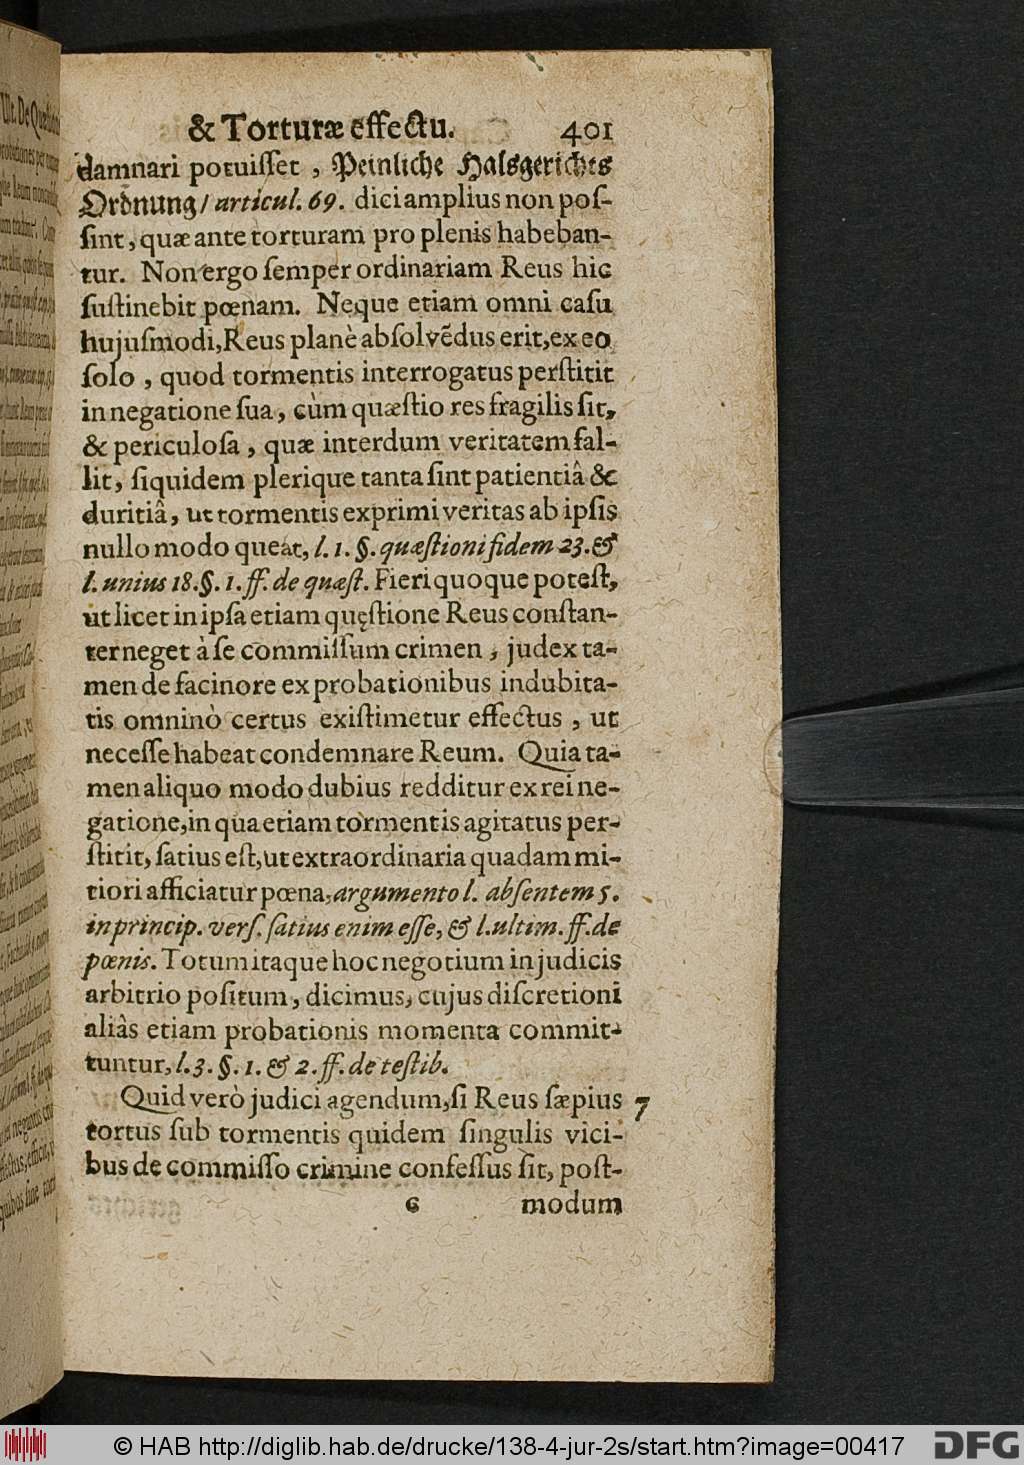 & Torturæ effectu. 401
damnari potuiſſet, Peinliche Halsgerichts
Ordnung/ articul. 69. dici amplius non poſ-
ſint, quæ ante torturam pro plenis habeban-
tur. Non ergo ſemper ordinariam Reus hic
ſuſtinebit pœnam. Neque etiam omni caſu
hujuſmodi, Reus planè abſolvẽdus erit, ex eo
ſolo, quod tormentis interrogatus perſtitit
in negatione ſua, cùm quæſtio res fragilis ſit,
& periculoſa, quæ interdum veritatem fal-
lit, ſiquidem plerique tanta ſint patientiâ &
duritiâ, ut tormentis exprimi veritas ab ipſis
nullo modo queat, l. 1. §. quæſtioni fidem 23. &
l. unius 18. §. 1. ff. de quæſt. Fieri quoque poteſt,
ut licet in ipſa etiam quęſtione Reus conſtan-
ter neget à ſe commiſſum crimen, judex ta-
men de facinore ex probationibus indubita-
tis omninò certus exiſtimetur effectus, ut
neceſſe habeat condemnare Reum. Quia ta-
men aliquo modo dubius redditur ex rei ne-
gatione, in qua etiam tormentis agitatus per-
ſtitit, ſatius eſt, ut extraordinaria quadam mi-
tiori afficiatur pœna, argumento l. abſentem 5.
in princip. verſ. ſatius enim eſſe, & l. ultim. ff. de
pœnis. Totum itaque hoc negotium in judicis
arbitrio poſitum, dicimus, cujus diſcretioni
aliàs etiam probationis momenta commit-
tuntur, l. 3. §. 1. & 2. ff. de teſtib.
Quid verò judici agendum, ſi Reus ſæpius 7
tortus ſub tormentis quidem ſingulis vici-
bus de commiſſo crimine confeſſus ſit, poſt-
modum
© HAB http://diglib.hab.de/drucke/138-4-jur-2s/start.htm?image=00417 DFG